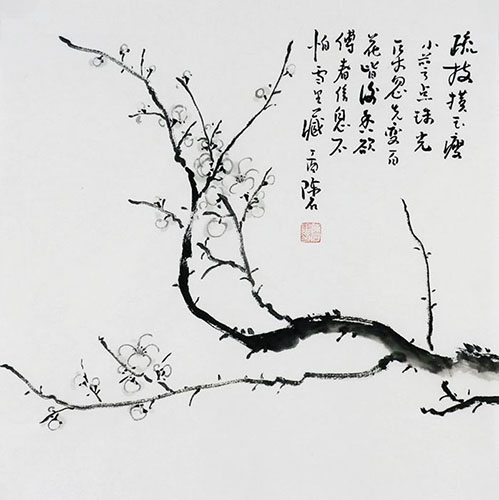 疏枝横玉瘦
小萼点珠光
一朵忽先變百
花皆後香欲
傳春信息不
怕雪里藏